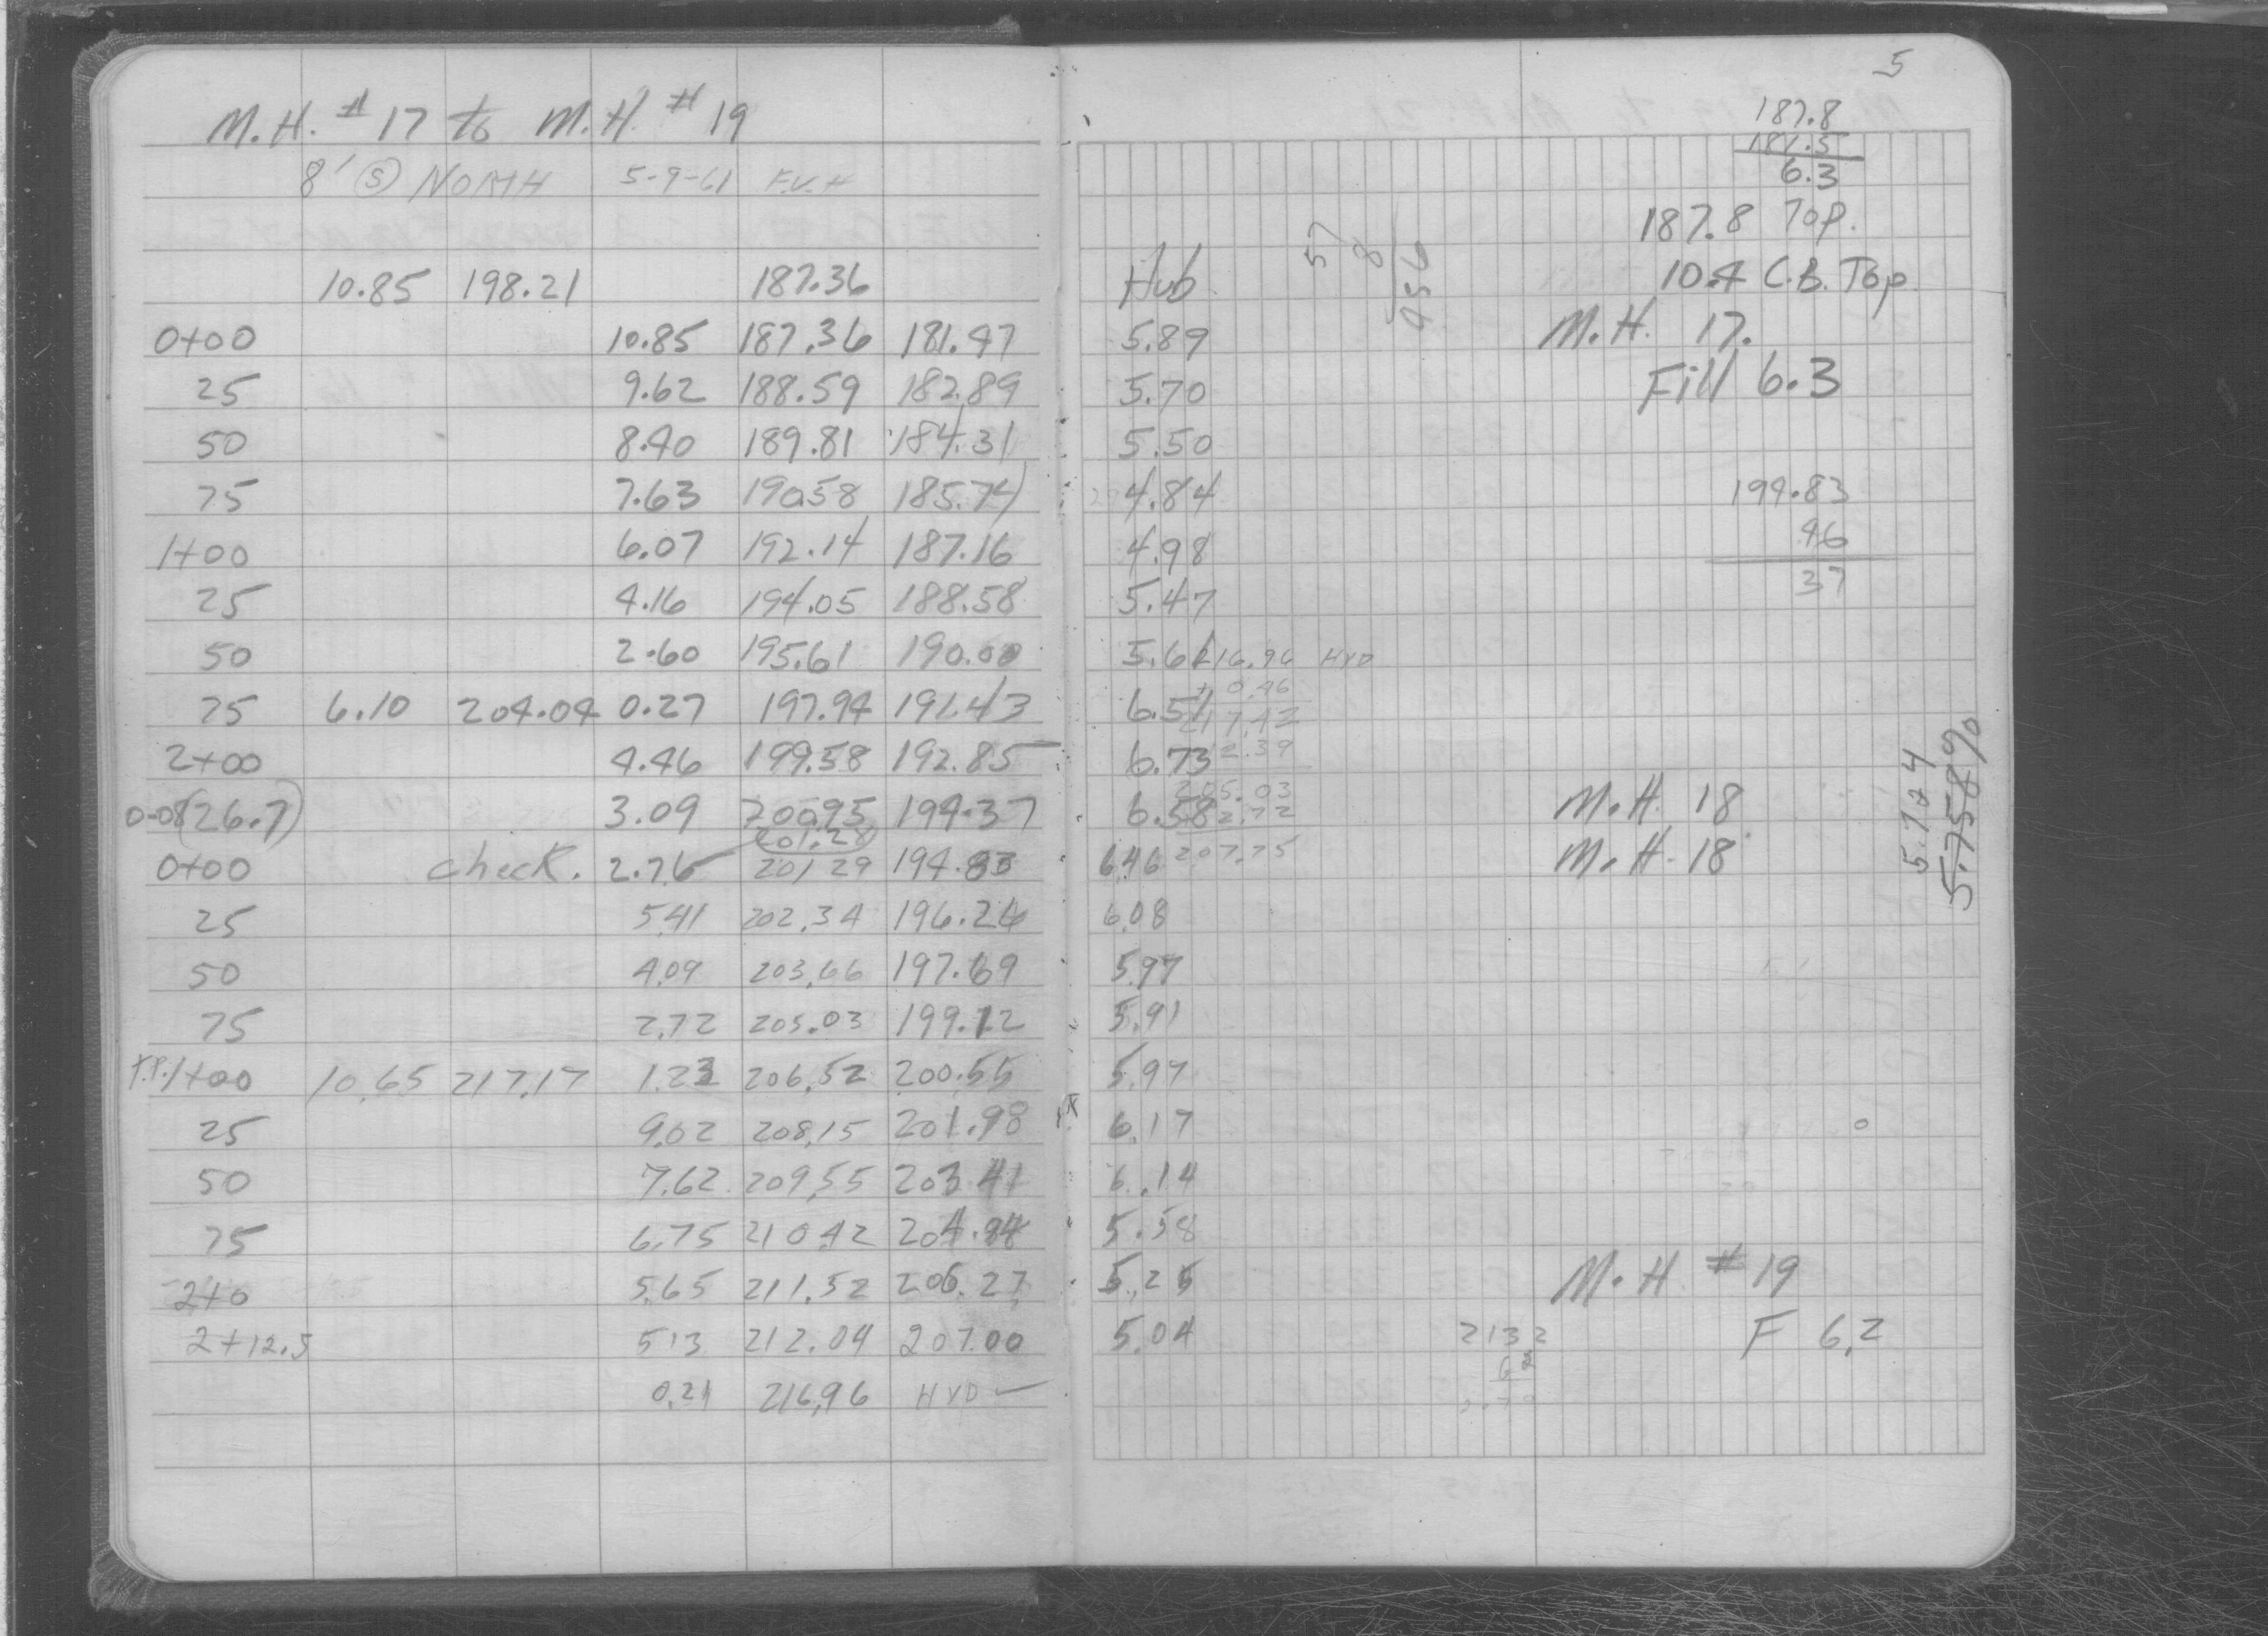 M.H. #17 to M.H. #19
8' Ⓢ NORTH 5-9-61 F.V.H
10.85 198.21 187.36
0+00 10.85 187.36 181.47
25 9.62 188.59 182.89
50 8.40 189.81 184.31
75 7.63 190.58 185.74
1+00 6.07 192.14 187.16
25 4.16 194.05 188.58
50 2.60 195.61 190.00
75 6.10 204.04 0.27 197.94 191.43
2+00 4.46 199.58 192.85
(26.7) 3.09 200.95 194.37
201.28
0+00 check. 2.76 201 29 194.83
25 5.41 202.34 196.26
50 4.09 203.66 197.69
75 2.72 205.03 199.12
T.P. 1+00 10.65 217.17 1.23 206.52 200.55
25 9.02 208.15 201.98
50 7.62 209.55 203.41
75 6.75 210.42 204.84
2+0 5.65 211.52 206.27
2+12.5 5.13 212.04 207.00
0.21 216.96 HYD
5
187.8
181.5
6.3
187.8 Top.
Hub 10.4 C.B. Top.
57
8
456
5.89 M.H. 17.
5.70 Fill 6.3
5.50
4.84 194.83
4.98 46
37
5.47
5.61 216.96 HYD
+ 0.46
6.51 217.42
6.73 12.39
205.03
6.58 2.72 M.H. 18
6.46 207.75 M.H. 18
5.724
5.758%
6.08
5.97
5.91
5.97
6.17
6.14
5.58
5.25 M.H. #19
5.04 213 2 F 6.2